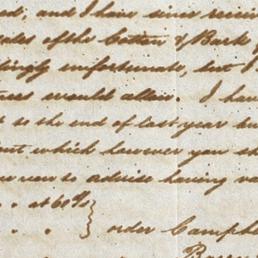 ed, and I have since receiv
ales of the Cotton & Bark
dingly unfortunate, but I
tures would allow. I hav
t to the end of last year
out which however you sh
you soon to advise having
. . at 60 %
. . . order Campbe